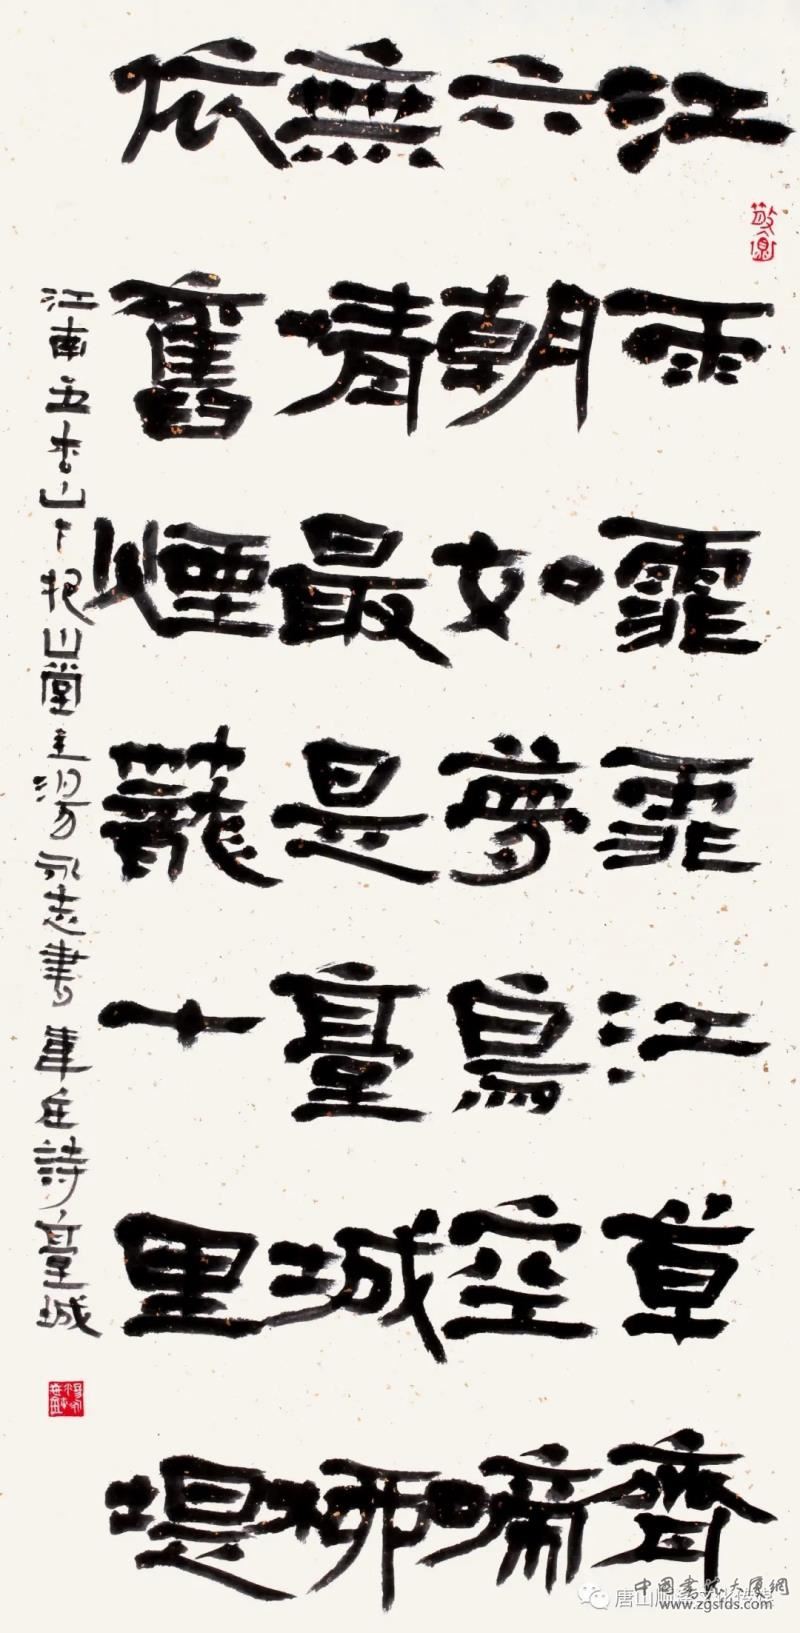 江雨霏霏江草齊
六朝如夢鳥空啼
無情最是臺城柳
依舊煙籠十里堤
江南五山下山堂主湯永志書韋庄詩臺城
中国書法大廈網
唐山
www.zgsfds.com